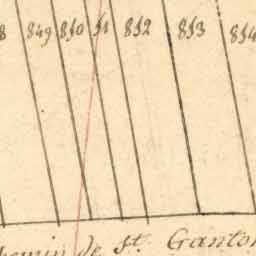 8 849 850 51 852 853 854
chemin de St. Ganton